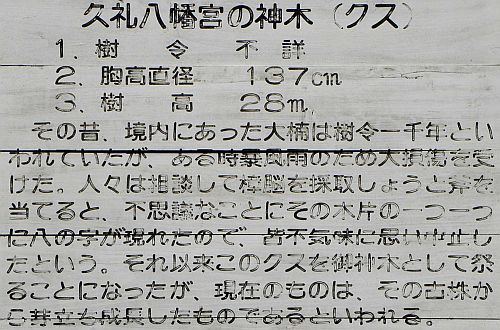 久礼八幡宮の神木（クス）
1．樹 令 不 詳
2．胸高直径 137cm
3．樹 高 28m
その昔、境内にあった大楠は樹令一千年とい
われていたが、ある時暴風雨のため大損傷を受
けた。人々は相談して樟脳を採取しょうと斧を
当てると、不思議なことにその木片の一つ一つ
に八の字が現れたので、皆不気味に思い中止し
たという。それ以来このクスを御神木として祭
ることになったが、現在のものは、その古株か
ら芽立ち成長したものであるといわれる。